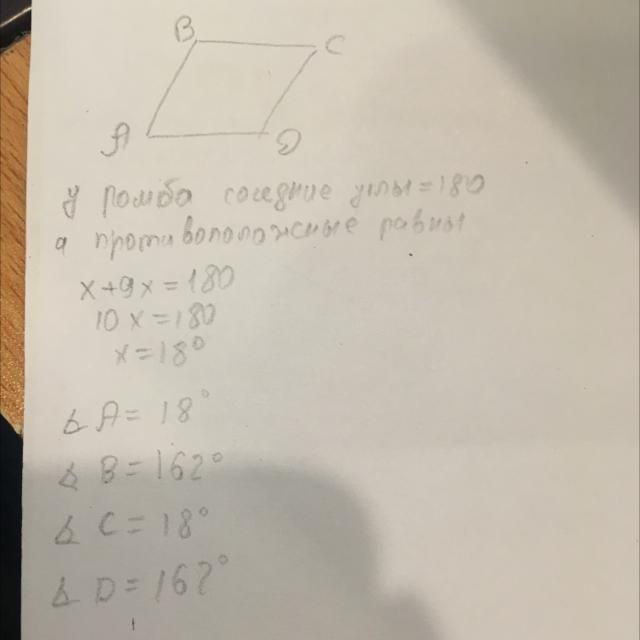 B C
A D
У ромба соседние углы=180
а противоположные равны
x+9x=180
10x=180
x=18°
∠A=18°
∠B=162°
∠C=18°
∠D=162°